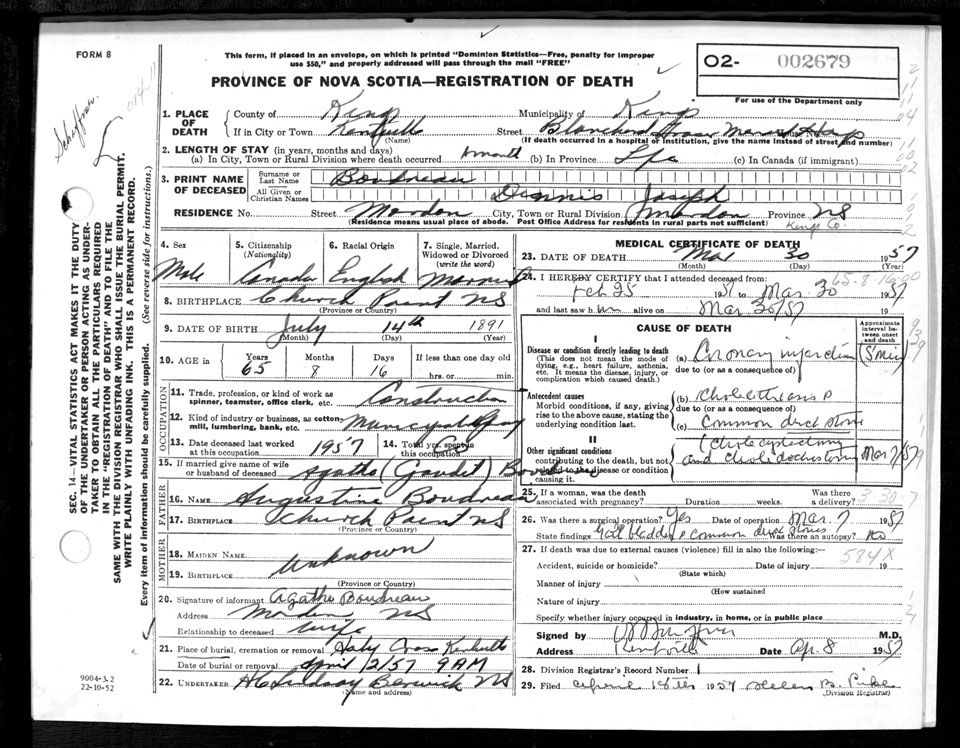 FORM 8
This form, if placed in an envelope, on which is printed "Dominion Statistics—Free, penalty for improper
use $50," and properly addressed will pass through the mail "FREE"
PROVINCE OF NOVA SCOTIA—REGISTRATION OF DEATH
O2- 002679
For use of the Department only
Schaffner
SEC. 14—VITAL STATISTICS ACT MAKES IT THE DUTY
OF THE UNDERTAKER OR PERSON ACTING AS UNDER-
TAKER TO OBTAIN ALL THE PARTICULARS REQUIRED
IN THE "REGISTRATION OF DEATH" AND TO FILE THE
SAME WITH THE DIVISION REGISTRAR WHO SHALL ISSUE THE BURIAL PERMIT.
WRITE PLAINLY WITH UNFADING INK. THIS IS A PERMANENT RECORD.
Every item of information should be carefully supplied. (See reverse side for instructions.)
1. PLACE OF DEATH County of Kings Municipality of Kings
If in City or Town Kentville Street Blanchard Fraser Memorial Hosp
(Name) (If death occurred in a hospital or institution, give the name instead of street and number)
2. LENGTH OF STAY (in years, months and days)
(a) In City, Town or Rural Division where death occurred 1 month (b) In Province Life (c) In Canada (if immigrant)
3. PRINT NAME OF DECEASED Surname or Last Name Boudreau
All Given or Christian Names Dennis Joseph
RESIDENCE No. Street Morden City, Town or Rural Division Morden Province NS
(Residence means usual place of abode. Post Office Address for residents in rural parts not sufficient) Kings Co.
4. Sex Male
5. Citizenship (Nationality) Canada
6. Racial Origin English
7. Single, Married, Widowed or Divorced (write the word) Married
8. BIRTHPLACE Church Point NS
(Province or Country)
9. DATE OF BIRTH July 14th 1891
(Month) (Day) (Year)
10. AGE in Years 65 Months 8 Days 16 If less than one day old hrs. or min.
OCCUPATION
11. Trade, profession, or kind of work as spinner, teamster, office clerk, etc. Construction
12. Kind of industry or business, as cotton-mill, lumbering, bank, etc.
13. Date deceased last worked at this occupation 1957 14. Total yrs. spent in this occupation
15. If married give name of wife or husband of deceased Agatha (Gaudet) Boudreau
FATHER
16. NAME Augustine Boudreau
17. BIRTHPLACE Church Point NS
(Province or Country)
MOTHER
18. MAIDEN NAME Unknown
19. BIRTHPLACE
(Province or Country)
20. Signature of informant Agatha Boudreau
Address Morden NS
Relationship to deceased wife
21. Place of burial, cremation or removal Holy Cross Kentville
Date of burial or removal April 2/57 9 AM
22. UNDERTAKER Lindsay Berwick NS
(Name and address)
9004-3.2
22-10-52
MEDICAL CERTIFICATE OF DEATH
23. DATE OF DEATH Mar 30 1957
(Month) (Day) (Year)
24. I HEREBY CERTIFY that I attended deceased from:
Feb 25 1957 to Mar. 30 1957
and last saw him alive on Mar 30/57 19
CAUSE OF DEATH
Approximate interval between onset and death
I
Disease or condition directly leading to death
(This does not mean the mode of dying, e.g., heart failure, asthenia, etc. It means the disease, injury, or complication which caused death.)
(a) Coronary infarction 5 Min
due to (or as a consequence of)
Antecedent causes
Morbid conditions, if any, giving rise to the above cause, stating the underlying condition last.
(b) Cholelithiasis
due to (or as a consequence of)
(c) Common duct stone
II
Other significant conditions
contributing to the death, but not related to the disease or condition causing it.
Cholecystectomy
and choledochostomy Mar 7/57
25. If a woman, was the death associated with pregnancy? Duration weeks. Was there a delivery?
26. Was there a surgical operation? Yes Date of operation Mar. 7 1957
State findings Gall bladder common duct stones Was there an autopsy? No
27. If death was due to external causes (violence) fill in also the following:—
584X
Accident, suicide or homicide? Date of injury 19
(State which)
Manner of injury
(How sustained)
Nature of injury
Specify whether injury occurred in industry, in home, or in public place
Signed by M.D.
Address Kentville Date Apr. 8 1957
28. Division Registrar's Record Number
29. Filed April 18th 1957 Helen B. Pike
(Division Registrar)